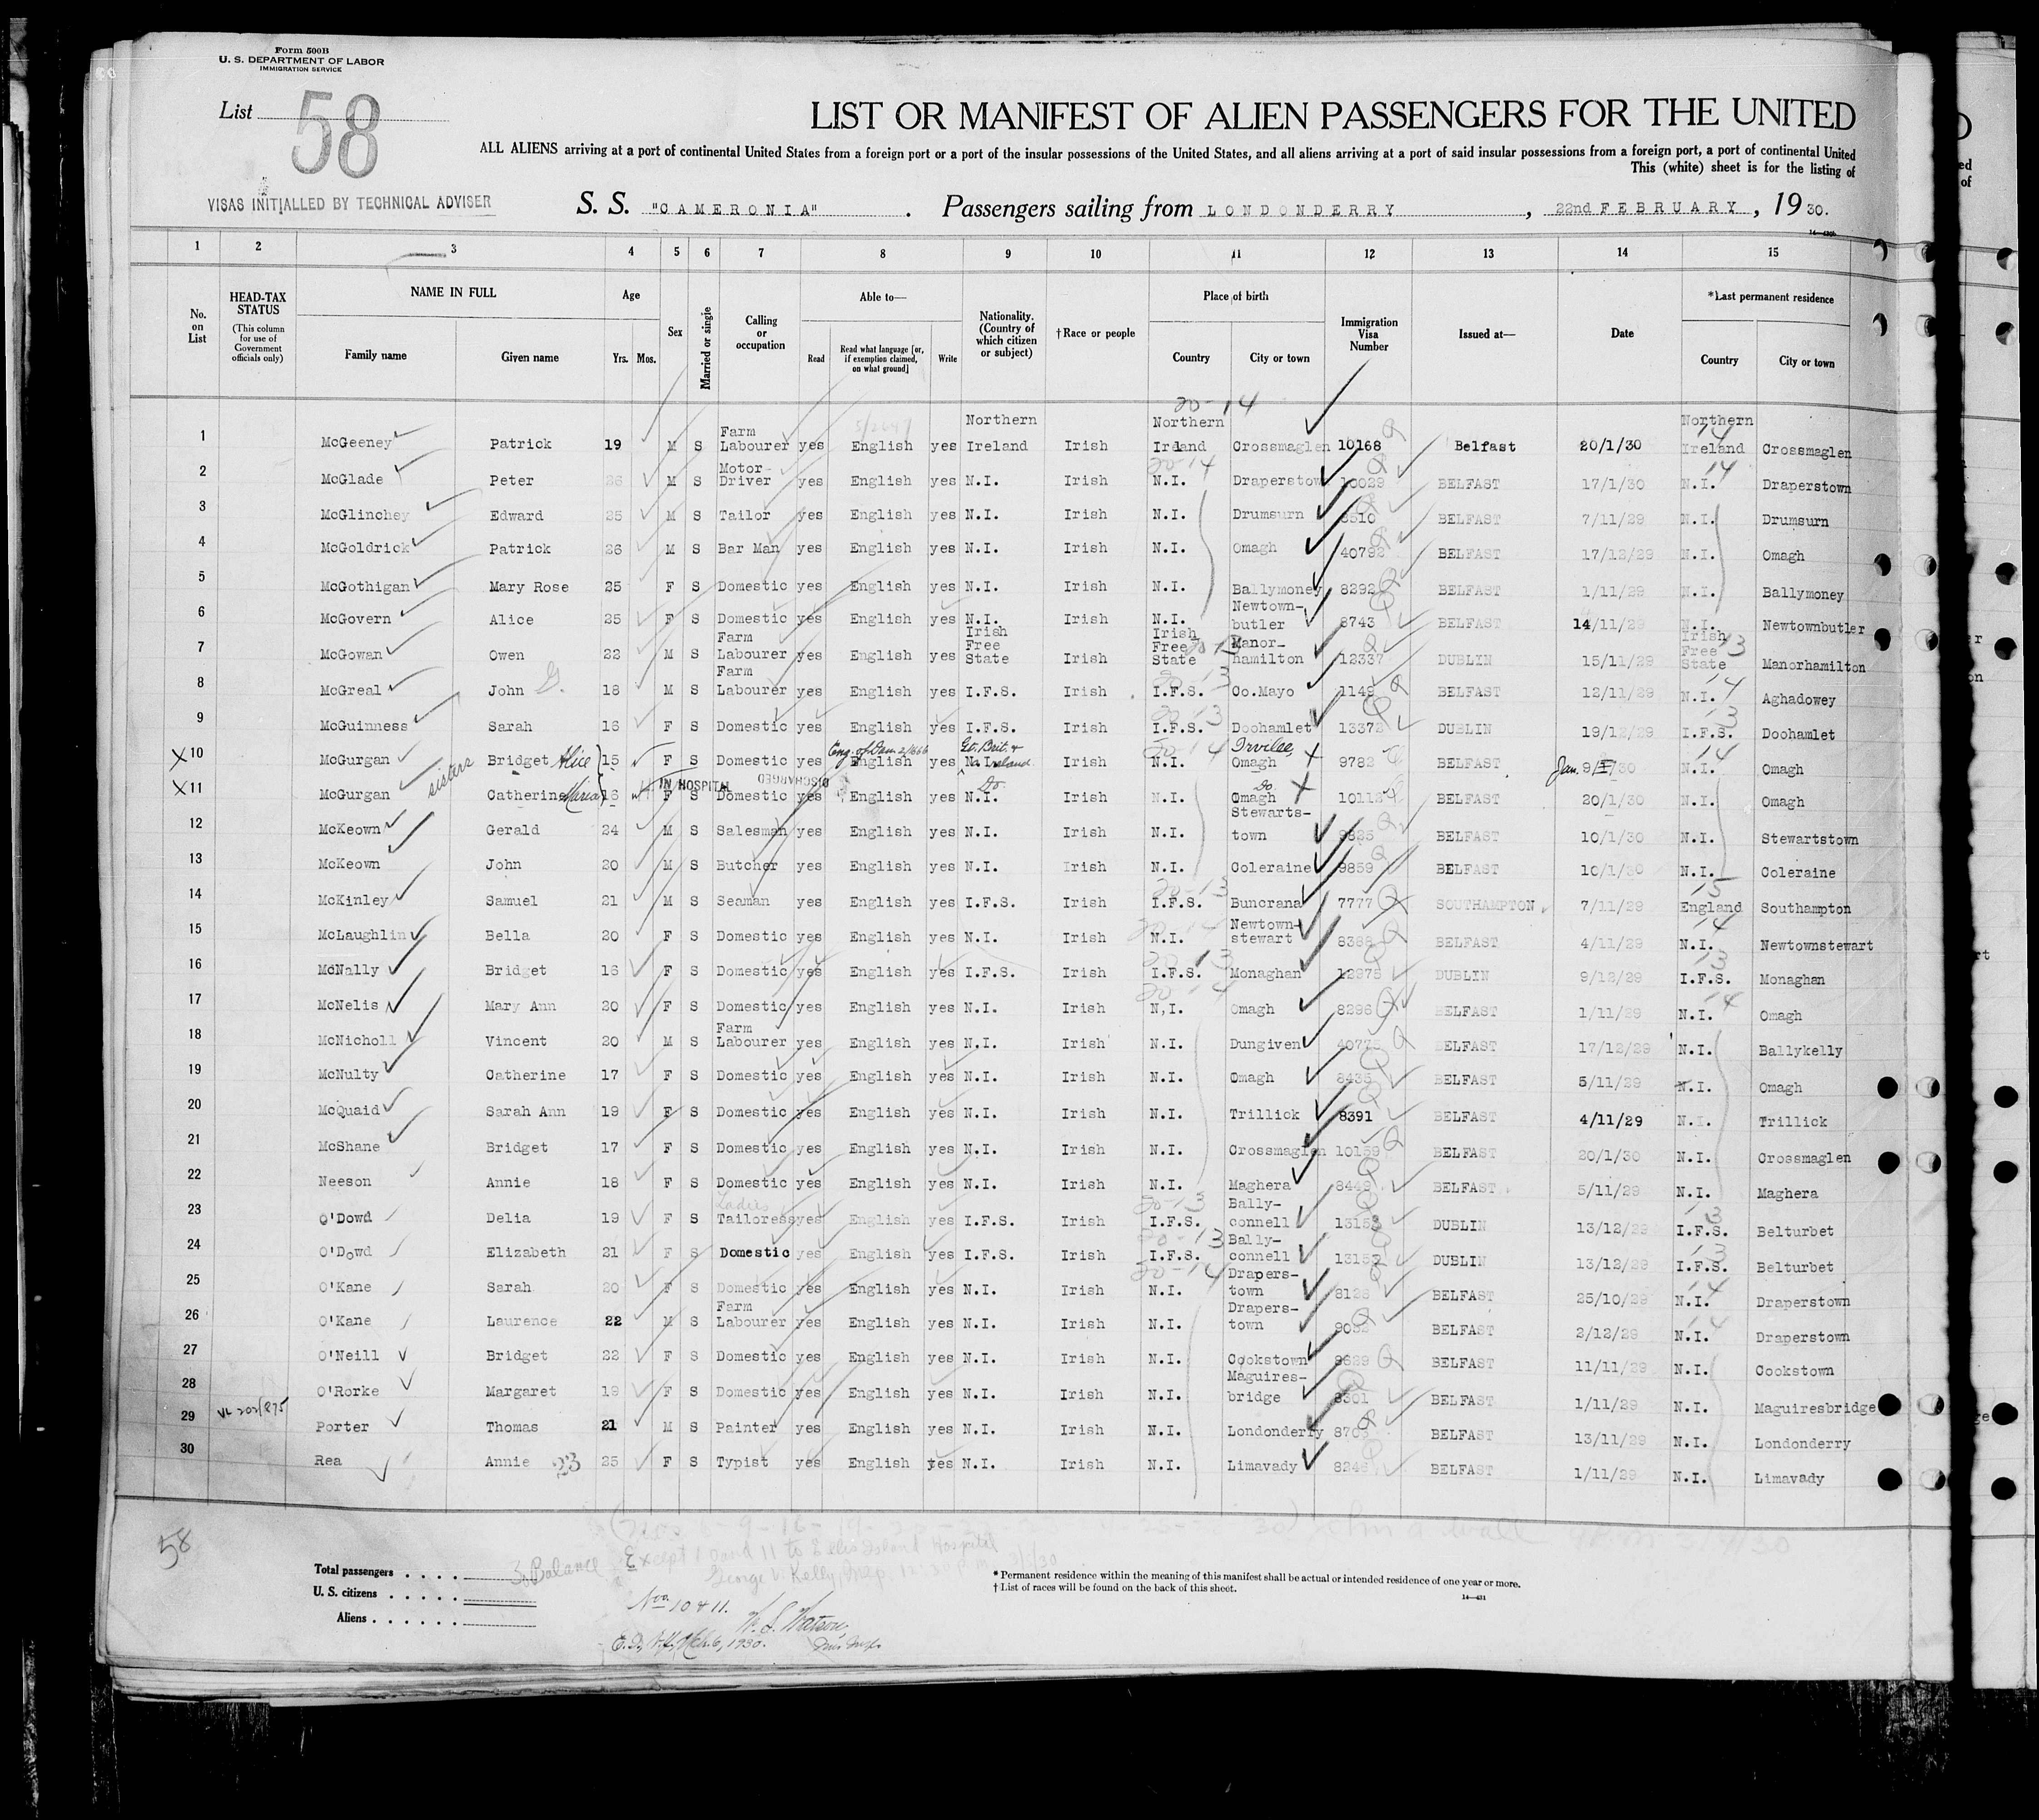 Form 500B
U. S. DEPARTMENT OF LABOR
IMMIGRATION SERVICE
List 58
LIST OR MANIFEST OF ALIEN PASSENGERS FOR THE UNITED
ALL ALIENS arriving at a port of continental United States from a foreign port or a port of the insular possessions of the United States, and all aliens arriving at a port of said insular possessions from a foreign port, a port of continental United
This (white) sheet is for the listing of
VISAS INITIALLED BY TECHNICAL ADVISER
S. S. "CAMERONIA". Passengers sailing from LONDONDERRY, 22nd FEBRUARY, 1930.
1 2 3 4 5 6 7 8 9 10 11 12 13 14 15
No. on List
HEAD-TAX STATUS (This column for use of Government officials only)
NAME IN FULL
Family name Given name
Age Yrs. Mos.
Sex
Married or single
Calling or occupation
Able to—
Read Read what language [or, if exemption claimed, on what ground] Write
Nationality. (Country of which citizen or subject)
†Race or people
Place of birth
Country City or town
Immigration Visa Number
Issued at—
Date
*Last permanent residence
Country City or town
20-14
1 McGeeney Patrick 19 M S Farm Labourer yes English yes Northern Ireland Irish Northern Ireland Crossmaglen 10168 Belfast 20/1/30 Northern Ireland Crossmaglen
2 McGlade Peter 26 M S Motor Driver yes English yes N.I. Irish N.I. Draperstown 10029 BELFAST 17/1/30 N.I. Draperstown
3 McGlinchey Edward 25 M S Tailor yes English yes N.I. Irish N.I. Drumsurn 8510 BELFAST 7/11/29 N.I. Drumsurn
4 McGoldrick Patrick 26 M S Bar Man yes English yes N.I. Irish N.I. Omagh 40792 BELFAST 17/12/29 N.I. Omagh
5 McGothigan Mary Rose 25 F S Domestic yes English yes N.I. Irish N.I. Ballymoney 8292 BELFAST 1/11/29 N.I. Ballymoney
6 McGovern Alice 25 F S Domestic yes English yes N.I. Irish N.I. Newtown-butler 8743 BELFAST 14/11/29 N.I. Newtownbutler
7 McGowan Owen 22 M S Farm Labourer yes English yes Irish Free State Irish Irish Free State Manor-hamilton 12337 DUBLIN 15/11/29 Irish Free State Manorhamilton
8 McGreal John G. 18 M S Farm Labourer yes English yes I.F.S. Irish I.F.S. Co.Mayo 1149 BELFAST 12/11/29 N.I. Aghadowey
9 McGuinness Sarah 16 F S Domestic yes English yes I.F.S. Irish I.F.S. Doohamlet 13372 DUBLIN 19/12/29 I.F.S. Doohamlet
X 10 McGurgan Bridget Alice 15 F S Domestic yes English yes Gt. Brit. & No. Ireland Irish N.I. Omagh 9782 BELFAST Jan. 9/30 N.I. Omagh
sisters
X 11 McGurgan Catherine Maria 16 IN HOSPITAL DISCHARGED F S Domestic yes English yes Do. N.I. Irish N.I. Do. Omagh 10112 BELFAST 20/1/30 N.I. Omagh
12 McKeown Gerald 24 M S Salesman yes English yes N.I. Irish N.I. Stewarts-town 9825 BELFAST 10/1/30 N.I. Stewartstown
13 McKeown John 20 M S Butcher yes English yes N.I. Irish N.I. Coleraine 9859 BELFAST 10/1/30 N.I. Coleraine
14 McKinley Samuel 21 M S Seaman yes English yes I.F.S. Irish I.F.S. Buncrana 7777 SOUTHAMPTON 7/11/29 England Southampton
15 McLaughlin Bella 20 F S Domestic yes English yes N.I. Irish N.I. Newtown-stewart 8388 BELFAST 4/11/29 N.I. Newtownstewart
16 McNally Bridget 16 F S Domestic yes English yes I.F.S. Irish I.F.S. Monaghan 12975 DUBLIN 9/12/29 I.F.S. Monaghan
17 McNelis Mary Ann 20 F S Domestic yes English yes N.I. Irish N.I. Omagh 8296 BELFAST 1/11/29 N.I. Omagh
18 McNicholl Vincent 20 M S Farm Labourer yes English yes N.I. Irish N.I. Dungiven 40775 BELFAST 17/12/29 N.I. Ballykelly
19 McNulty Catherine 17 F S Domestic yes English yes N.I. Irish N.I. Omagh 8435 BELFAST 5/11/29 N.I. Omagh
20 McQuaid Sarah Ann 19 F S Domestic yes English yes N.I. Irish N.I. Trillick 8391 BELFAST 4/11/29 N.I. Trillick
21 McShane Bridget 17 F S Domestic yes English yes N.I. Irish N.I. Crossmaglen 10159 BELFAST 20/1/30 N.I. Crossmaglen
22 Neeson Annie 18 F S Domestic yes English yes N.I. Irish N.I. Maghera 8449 BELFAST 5/11/29 N.I. Maghera
23 O'Dowd Delia 19 F S Ladies Tailoress yes English yes I.F.S. Irish I.F.S. Bally-connell 13153 DUBLIN 13/12/29 I.F.S. Belturbet
24 O'Dowd Elizabeth 21 F S Domestic yes English yes I.F.S. Irish I.F.S. Bally-connell 13152 DUBLIN 13/12/29 I.F.S. Belturbet
25 O'Kane Sarah 20 F S Domestic yes English yes N.I. Irish N.I. Drapers-town 8128 BELFAST 25/10/29 N.I. Draperstown
26 O'Kane Laurence 22 M S Farm Labourer yes English yes N.I. Irish N.I. Drapers-town 9052 BELFAST 2/12/29 N.I. Draperstown
27 O'Neill Bridget 22 F S Domestic yes English yes N.I. Irish N.I. Cookstown 8629 BELFAST 11/11/29 N.I. Cookstown
28 O'Rorke Margaret 19 F S Domestic yes English yes N.I. Irish N.I. Maguires-bridge 8301 BELFAST 1/11/29 N.I. Maguiresbridge
29 Porter Thomas 21 M S Painter yes English yes N.I. Irish N.I. Londonderry 8703 BELFAST 13/11/29 N.I. Londonderry
30 Rea Annie 23 25 F S Typist yes English yes N.I. Irish N.I. Limavady 8248 BELFAST 1/11/29 N.I. Limavady
58
Total passengers
U. S. citizens
Aliens
Balance Except 10 and 11 to Ellis Island Hospital
George V. Kelly, Insp.
Nos. 10 & 11.
W. S. Watson,
Imm. Insp.
* Permanent residence within the meaning of this manifest shall be actual or intended residence of one year or more.
† List of races will be found on the back of this sheet.
14—431